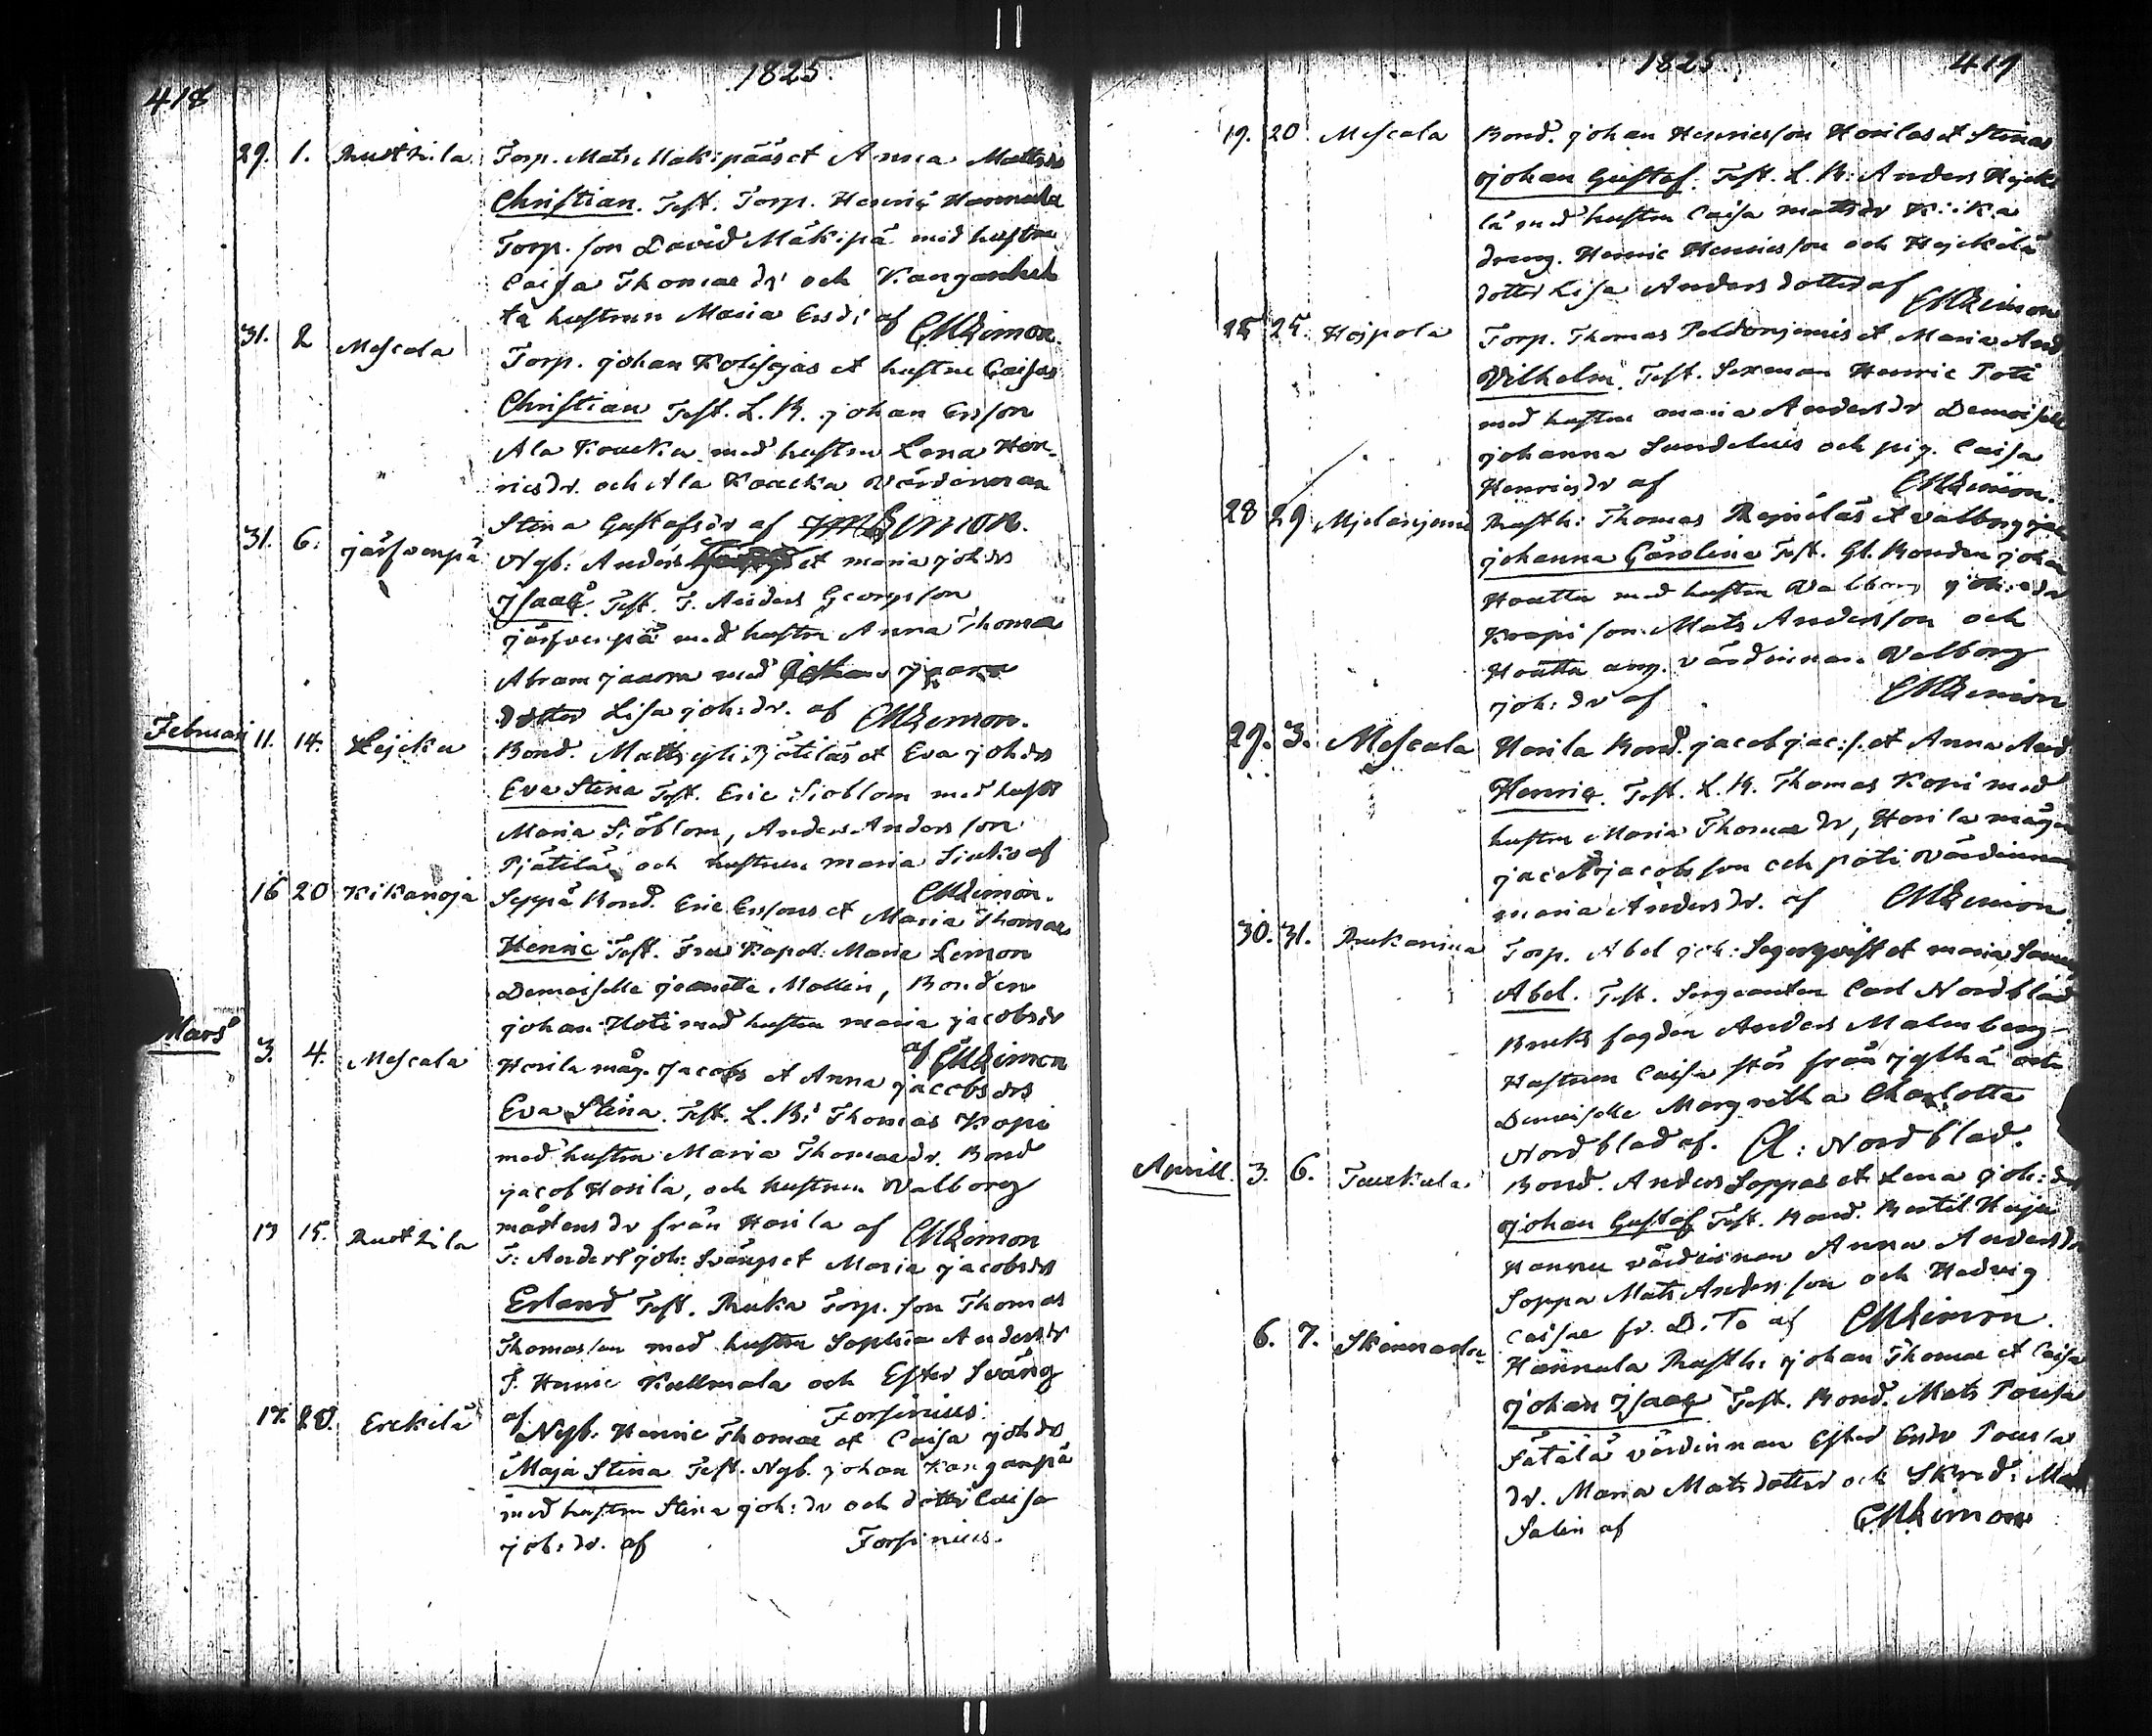 418 1825
29. 1. Rusthila Torp. Mats Makipääs et Anna Matts dr
Christian. Test. Torp. Henric Hannula
Torp. son David Mäkipä med hustru
Caisa Thomae dr och Kangan
ta hustrun Maria Ersdr af CM Lemon.
31. 2 Mescala Torp. johan Kotisojas et hustru Caisas
Christian Test. L. B. johan Ersson
Ala Koucka med hustru Lena Hen-
ricsdr. och Ala Koucka Värdinnan
Stina Gustafsdr af Lemon.
31. 6: järfvenpä Nyb. Anders et maria joh drs
Jsaac. Test. T. Anders Georgsson
järfvenpä med hustru Anna Thomae
Abram jaaon med
dotter Lisa joh: dr. af CM Lemon.
Februari 11. 14. Lejcku Bond. Matts yli Pjätiläs et Eva joh drs
Eva Stina Test. Eric Siöblom med hustr
Maria Siöblom, Anders Andersson
Pjätilä och hustrun maria af
CM Lemon.
16 20 Kikanoja Seppä Bond. Eric Erssons et Maria Thomae
Henric Test. Fru Kapel: Maria Lemon
Demoiselle jeanette Mollin, Bonden
johan Hoti med hustru maria jacobsdr
af CM Lemon
Mars 3. 4. Mescala Horila måg. Jacobs et Anna jacobs drs
Eva Stina. Test. L. B: Thomas Kopi
med hustru Maria Thomae dr. Bond
jacob Horila, och hustrun Valborg
mårtens dr från Horila af CM Lemon
13 15. Rusthila T: Anders joh: Svängs et Maria jacobs drs
Erland Test. Ruka Torp. son Thomas
Thomasson med hustru Sophia Andersdr
T. Henric Kullmala och Ester Sväng
af Forsinius.
17. 20. Erckilä Nyb. Henric Thomae et Caisa joh drs
Maja Stina Test. Nyb. johan Kanganpä
med hustru Stina joh: dr och dotter Caisa
joh: dr. af Forsinius.
1825. 419
19. 20 Mescala Bond. johan Henricsson Horilas et Stinas
johan Gustaf. Test. L. B: Anders Hejcki
lä med hustru Caisa mattsdr Kiika
dreng. Henric Henricsson och Hejckilä
dotter Lisa Anders dotter af CM Lemon
25 25. Hoipola Torp. Thomas Peldonjemis et Maria And
Vilhelm. Test. Sexman Henric Poti
med hustru maria Andersdr Demoiselle
johanna Sundelius och pig. Caisa
Henricsdr af CM Lemon.
28 29 Mjelanjemi Rusth: Thomas et Valborg
johanna Carolina Test. Gl. Bonden johan
Houtta med hustru Valborg joh: dr
Krapi son Mats Andersson och
Houtta ung. värdinnan Valborg
joh: dr af CM Lemon
29. 3. Mescala Horila Bond. jacob jac: s. et Anna And
Henric. Test. L. B. Thomas Kopi med
hustru Maria Thomae dr, Horila mågen
jacob jacobsson och poti Värdinnan
maria Anders dr. af CM Lemon.
30. 31. Torp. Abel joh: Segerqvist et maria Samu
Abel. Test. Sergeanten Carl Nordblad
Bruks fogden Anders Malmberg
Hustrun Caisa Stör från jylhä och
Demoiselle Margretha Charlotta
Nordblad af. Cl: Nordblad.
Aprill. 3. 6. Taurkula Bond. Anders Soppas et Lena joh: dr
johan Gustaf Test. Bond. Bertil Huju
Hannu värdinnan Anna Andersdr
Soppa Mats Andersson och Hedvig
Caisae fr. D: To af CM Lemon.
6. 7. Skinnarla Hannula Rusth: johan Thomae et Caisa
johan Jsaac Test. Bond. Mats Pousa
Sätälä värdinnan Ester Ersdr Pousa
dr. Maria Mats dotter och Skred: Mats
Salin af CM Lemon